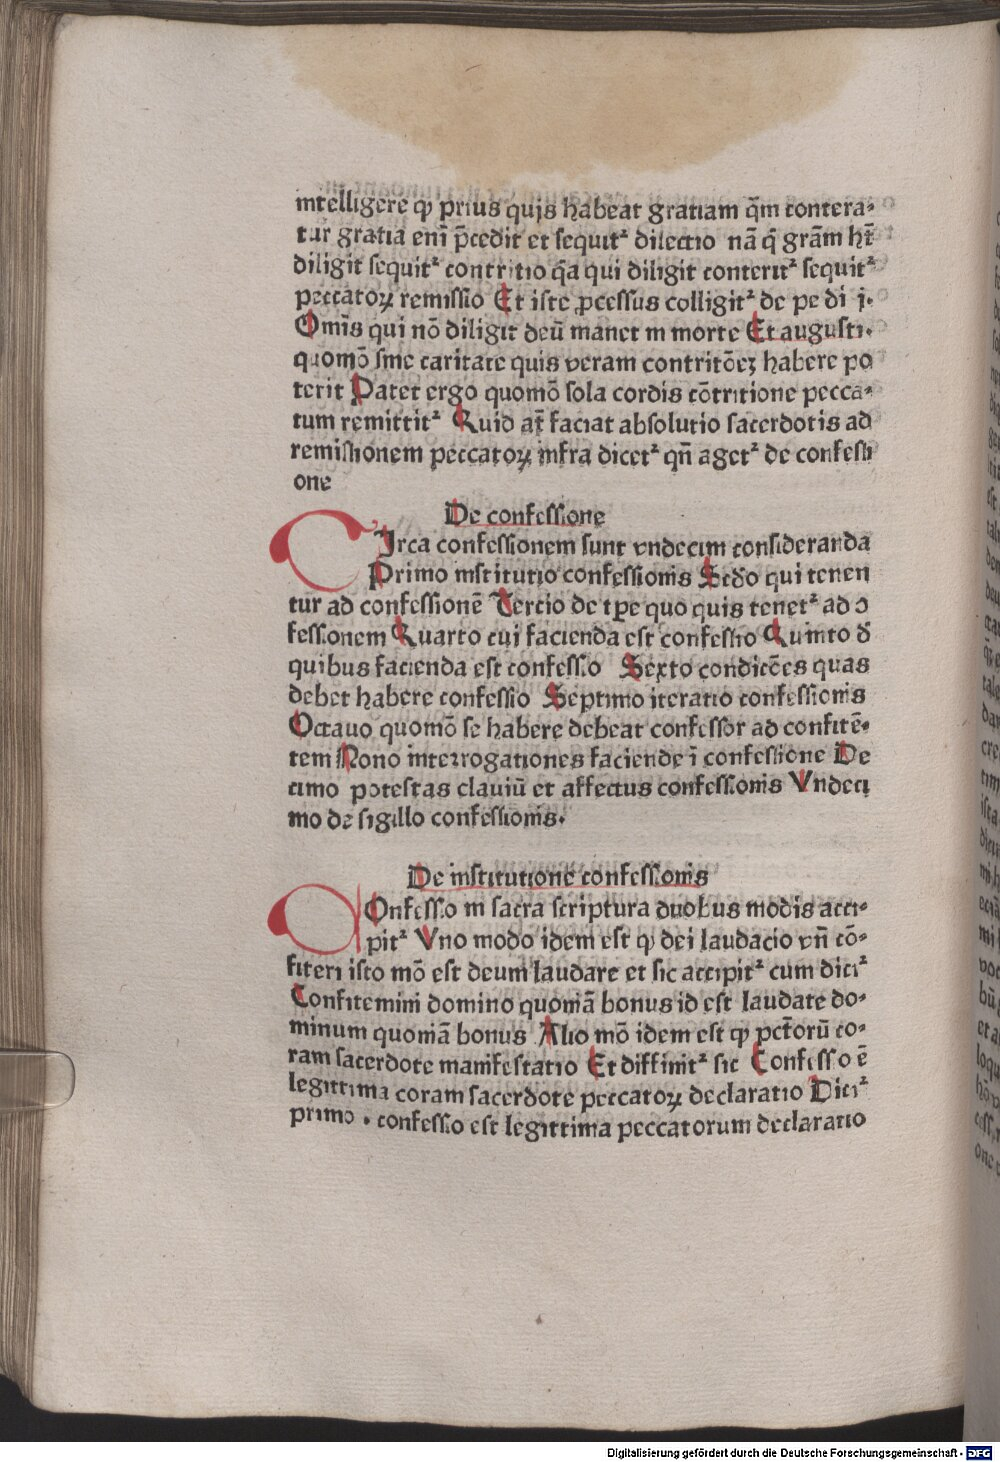 intelligere ꝙ prius quis habeat gratiam q̄m contera⸗
tur gratia eni p̄cedit et sequit᷑ dilectio nā q̇ grām ht̄
diligit sequit᷑ contritio q̄a qui diligit conterit᷑ sequit᷑
peccatoꝝ remissio Et iste ꝓcessus colligit᷑ de pe di j.
Om̄is qui nō diligit deū manet in morte Et augusti.
quomō sine caritate quis veram contritōeꝫ habere po
terit Patet ergo quomō sola cordis cōtritione pecca⸗
tum remittit᷑ Quid at̄ faciat absolutio sacerdotis ad
remissionem peccatoꝝ infra dicet᷑ qn̄ aget᷑ de confessi
one
De confessione
CIrca confessionem sunt vndecim consideranda
Primo institutio confessionis Scdo qui tenen
tur ad confessionē Tercio de tp̄e quo quis tenet᷑ ad ꝯ
fessionem Quarto cui facienda est confessio Quinto d̄
quibus facienda est confessio Sexto condicōes quas
debet habere confessio Septimo iteratio confessionis
Octauo quomō se habere debeat confessor ad confitē⸗
tem Nono interrogationes faciende ī confessione De
cimo potestas clauiū et affectus confessionis Vndeci
mo de sigillo confessionis.
De institutione confessionis
COnfessio in sacra scriptura duobus modis acci⸗
pit᷑ Vno modo idem est ꝙ dei laudacio vn̄ cō⸗
fiteri isto mō est deum laudare et sic accipit᷑ cum dici᷑
Confitemini domino quoniā bonus id est laudate do⸗
minum quoniā bonus Alio mō idem est ꝙ pct̄orū co⸗
ram sacerdote manifestatio Et diffinit᷑ sic Confessio ē
legittima coram sacerdote peccatoꝝ declaratio Dici᷑
primo . confessio est legittima peccatorum declaratio
Digitalisierung gefördert durch die Deutsche Forschungsgemeinschaft - DFG